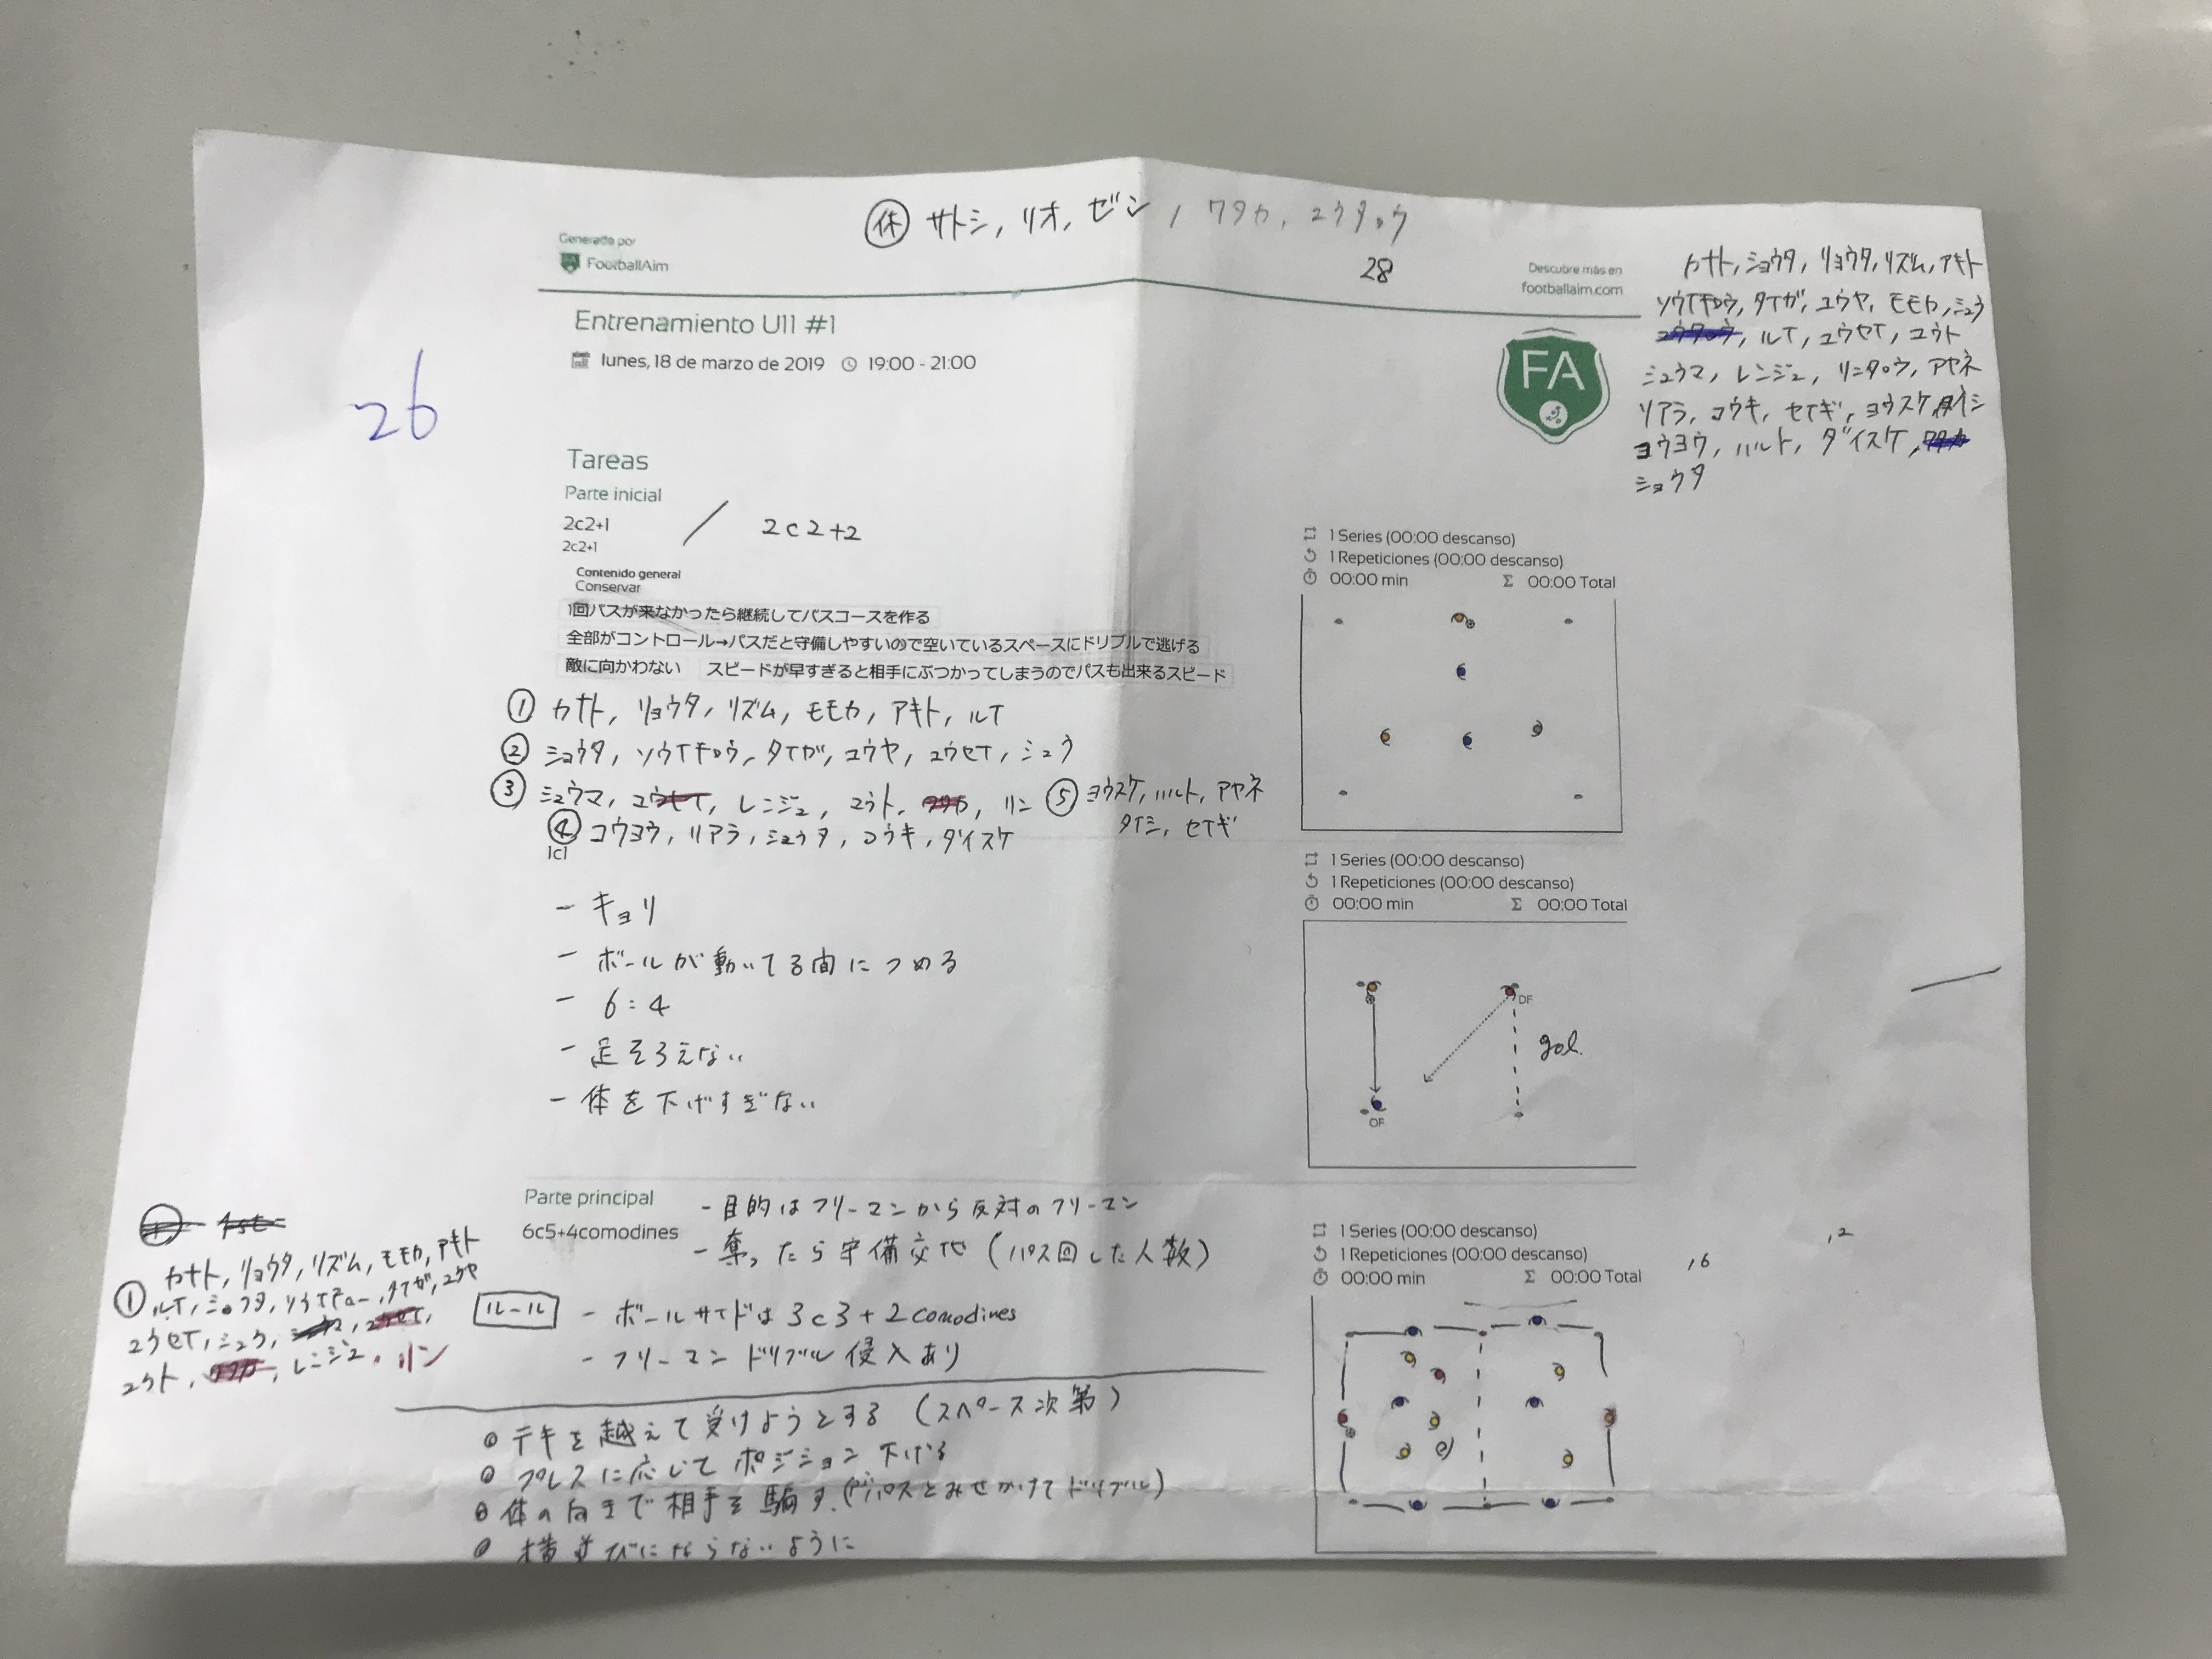 休 サトシ, リオ, ゼン, ワタカ, ユウタロウ
28
Generado por
FootballAim
Descubre más en
footballaim.com
カナト, ショウタ, リョウタ, リズム, アキト
ソウイチロウ, タイガ, ユウヤ, モモカ, シュウ
ユウタロウ, ルイ, ユウセイ, ユウト
シュウマ, レンジュ, リンタロウ, アヤネ
リアラ, コウキ, セイギ, ヨウスケ, タイシ
コウヨウ, ハルト, ダイスケ, ワタカ
ショウタ
FA
Entrenamiento U11 #1
lunes, 18 de marzo de 2019 19:00 - 21:00
26
Tareas
Parte inicial
2c2+1 / 2c2+2
2c2+1
Contenido general
Conservar
1回パスが来なかったら継続してパスコースを作る
全部がコントロール→パスだと守備しやすいので空いているスペースにドリブルで逃げる
敵に向かわない スピードが早すぎると相手にぶつかってしまうのでパスも出来るスピード
1 Series (00:00 descanso)
1 Repeticiones (00:00 descanso)
00:00 min Σ 00:00 Total
① カナト, リョウタ, リズム, モモカ, アキト, ルイ
② ショウタ, ソウイチロウ, タイガ, ユウヤ, ユウセイ, シュウ
③ シュウマ, ユウセイ, レンジュ, ユウト, ワタカ, リン
⑤ ヨウスケ, ハルト, アヤネ
タイシ, セイギ
④ コウヨウ, リアラ, シュウタ, コウキ, ダイスケ
1c1
- キョリ
- ボールが動いてる間につめる
- 6:4
- 足そろえない
- 体を下げすぎない
1 Series (00:00 descanso)
1 Repeticiones (00:00 descanso)
00:00 min Σ 00:00 Total
DF
gol.
OF
Parte principal
6c5+4comodines
- 目的はフリーマンから反対のフリーマン
- 奪ったら守備交代 (パス回した人数)
ルール - ボールサイドは3c3+2comodines
- フリーマンドリブル侵入あり
1 Series (00:00 descanso)
1 Repeticiones (00:00 descanso)
00:00 min Σ 00:00 Total
,6
,2
カナト, リョウタ, リズム, モモカ, アキト
① ルイ, ショウタ, ソウイチロー, タイガ, ユウヤ
ユウセイ, シュウ, シュウマ, ユウセイ,
ユウト, ワタカ, レンジュ, リン
テキを越えて受けようとする (スペース次第)
プレスに応じてポジション下げる
体の向きで相手を騙す. (パスとみせかけてドリブル)
横並びにならないように